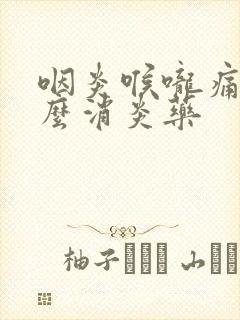 咽炎喉嚨痛
麼消炎藥
柚子 山